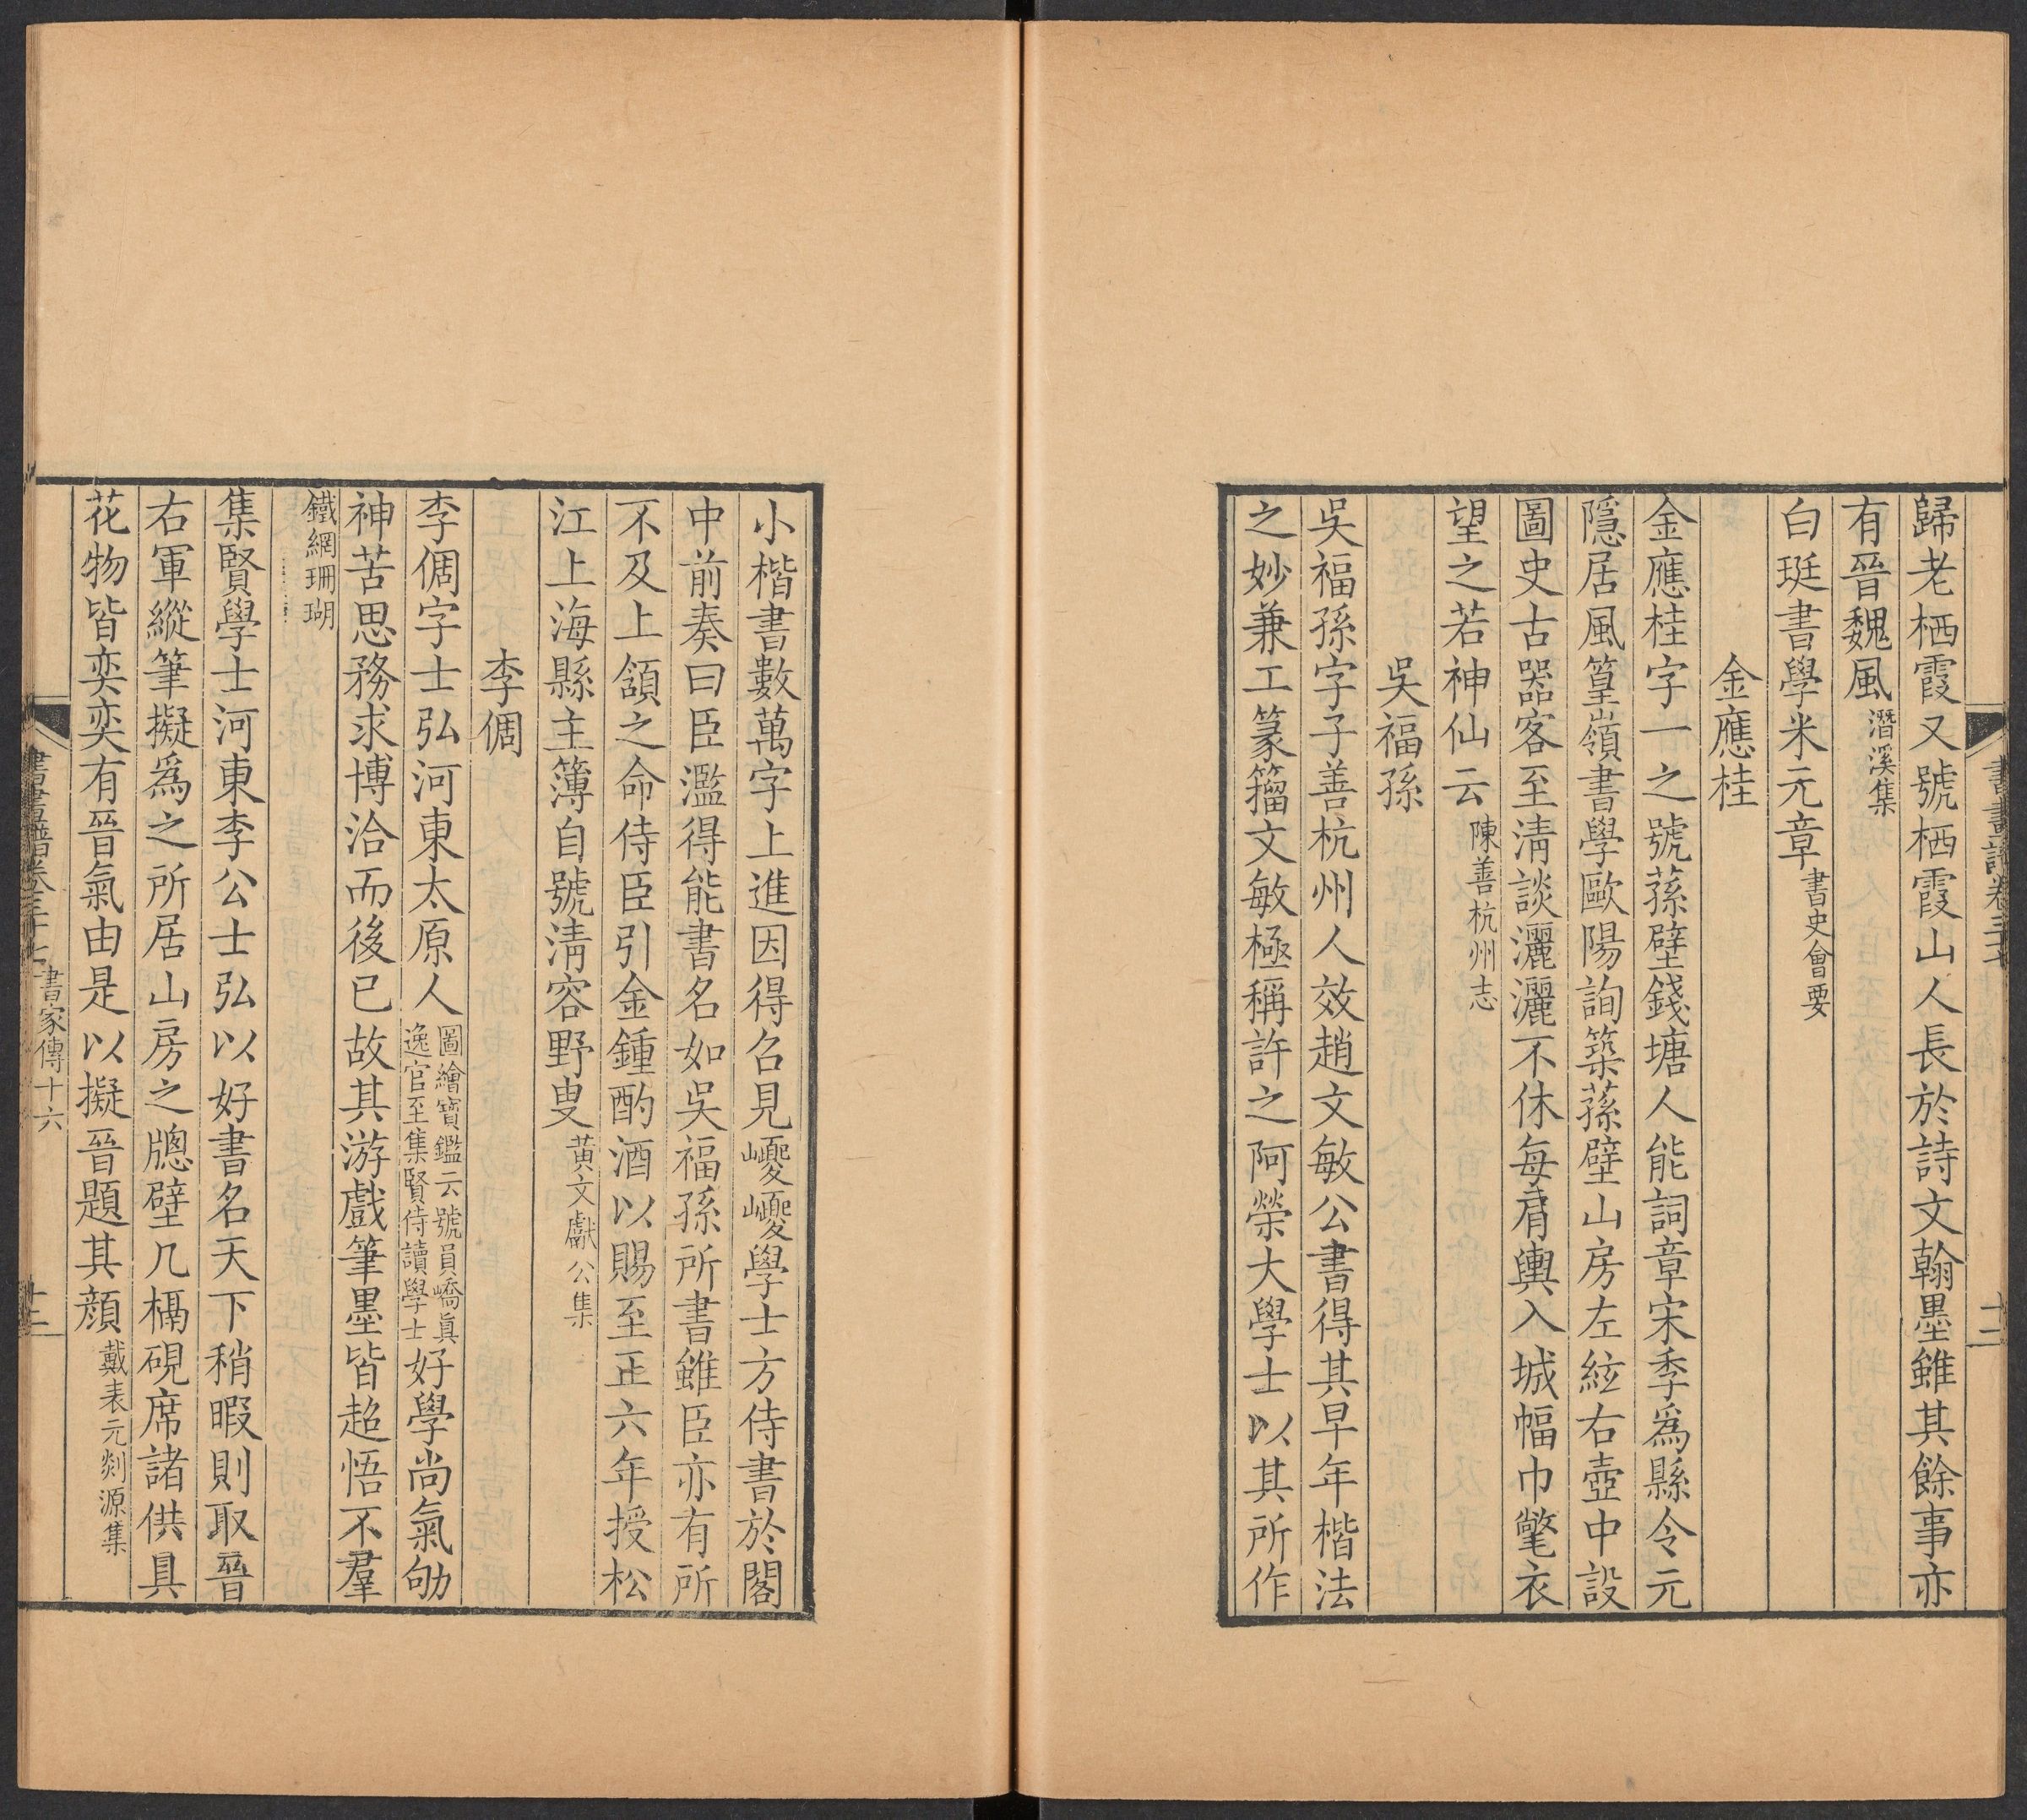 歸老栖霞又號栖霞山人長於詩文翰墨雖其餘事亦
有晉魏風潛溪集
白珽書學米元章書史會要
金應桂
金應桂字一之號蓀壁錢塘人能詞章宋季爲縣令元
隱居風篁嶺書學歐陽詢築蓀壁山房左絃右壺中設
圖史古器客至淸談灑灑不休每肩輿入城幅巾氅衣
望之若神仙云陳善杭州志
吳福孫
吳福孫字子善杭州人效趙文敏公書得其早年楷法
之妙兼工篆籀文敏極稱許之阿榮大學士以其所作
小楷書數萬字上進因得召見巙巙學士方侍書於閣
中前奏曰臣濫得能書名如吳福孫所書雖臣亦有所
不及上頷之命侍臣引金鍾酌酒以賜至正六年授松
江上海縣主簿自號淸容野叟黃文獻公集
李倜
李倜字士弘河東太原人圖繪寶鑑云號員嶠眞逸官至集賢侍讀學士好學尚氣劬
神苦思務求博洽而後已故其游戲筆墨皆超悟不羣
鐵網珊瑚
集賢學士河東李公士弘以好書名天下稍暇則取晉
右軍縱筆擬爲之所居山房之牕壁几槅硯席諸供具
花物皆奕奕有晉氣由是以擬晉題其顏戴表元剡源集
書畫譜卷三十七 書家傳十六 十二